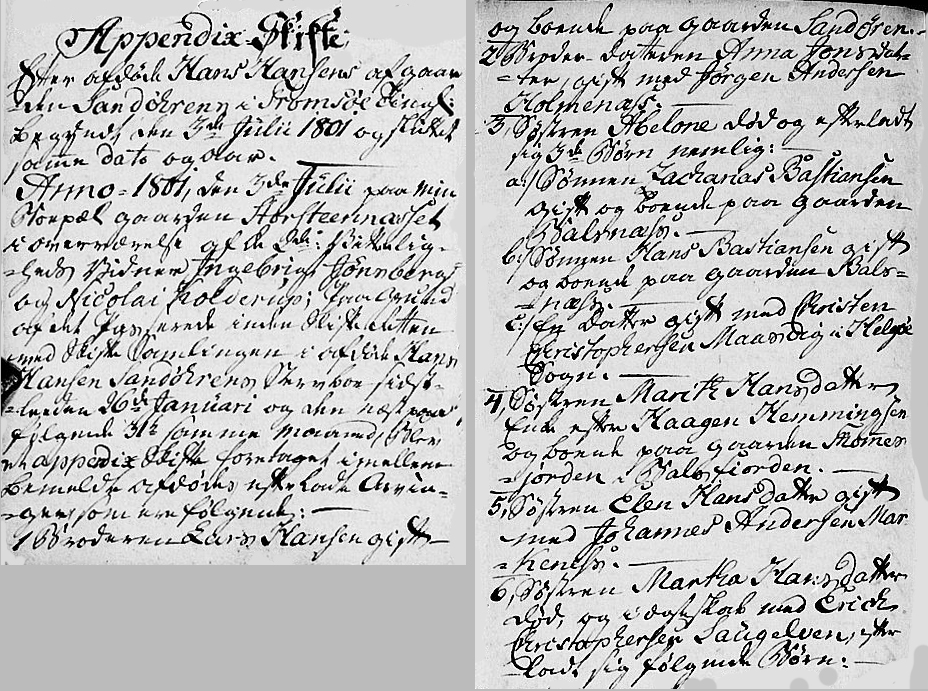 Appendix Skifte
Efter afdøde Hans Hansens af gaar
den Sandøhrenn i Tromsøe Tingl:
begyndt den 3de Julii 1801 og sluttet
samme dato og aar.
Anno 1801, den 3de Julii paa min
Boepæl gaarden Storsteennæsset
i overværelse af de 2de Skifte lig-
heds Vidner Ingebrigt Jønsberg
og Nicolai Holderup; fra Grund
af det passerede inden Skifte Retten
med Skifte Samlingen i afdøde Hans
Hansen Sandøhrens Sterboe sidst-
leden 26de Januari og den næst paa
følgende 31te samme maaned, Blev
et appendix Skifte foretaget imellem
bemelte afdødes efterladte Arvin-
ger som ere følgende:
1 Broderen Lars Hansen gift
og boende paa gaarden Sandøren.
2 Broder-datteren Anna Jonsdat-
ter, gift med Jørgen Andersen
Holmenæs.
3, Søsteren Abelone død og efterladt
sig 3de Børn nemlig:
a:/ Sønnen Zacharias Bastiansen
gift og boende paa gaarden
Balsnæss.
b:/ Sønnen Hans Bastiansen gift
og boende paa gaarden Bals-
næss.
c:/ En Datter gift med Christen
Christophersen Maasdig i Helgøe
Sogn.
4, Søsteren Marith Hansdatter
Enke efter Haagen Hemmingsen
og boende paa gaarden Stomes-
jorden i Balsfiorden.
5, Søsteren Elen Hansdatter gift
med Johannes Andersen Mar
keness.
6, Søsteren Martha Hansdatter
død, og i ægteskab med Erich
Christophersen Laugelven, efter
lad sig følgende Børn: